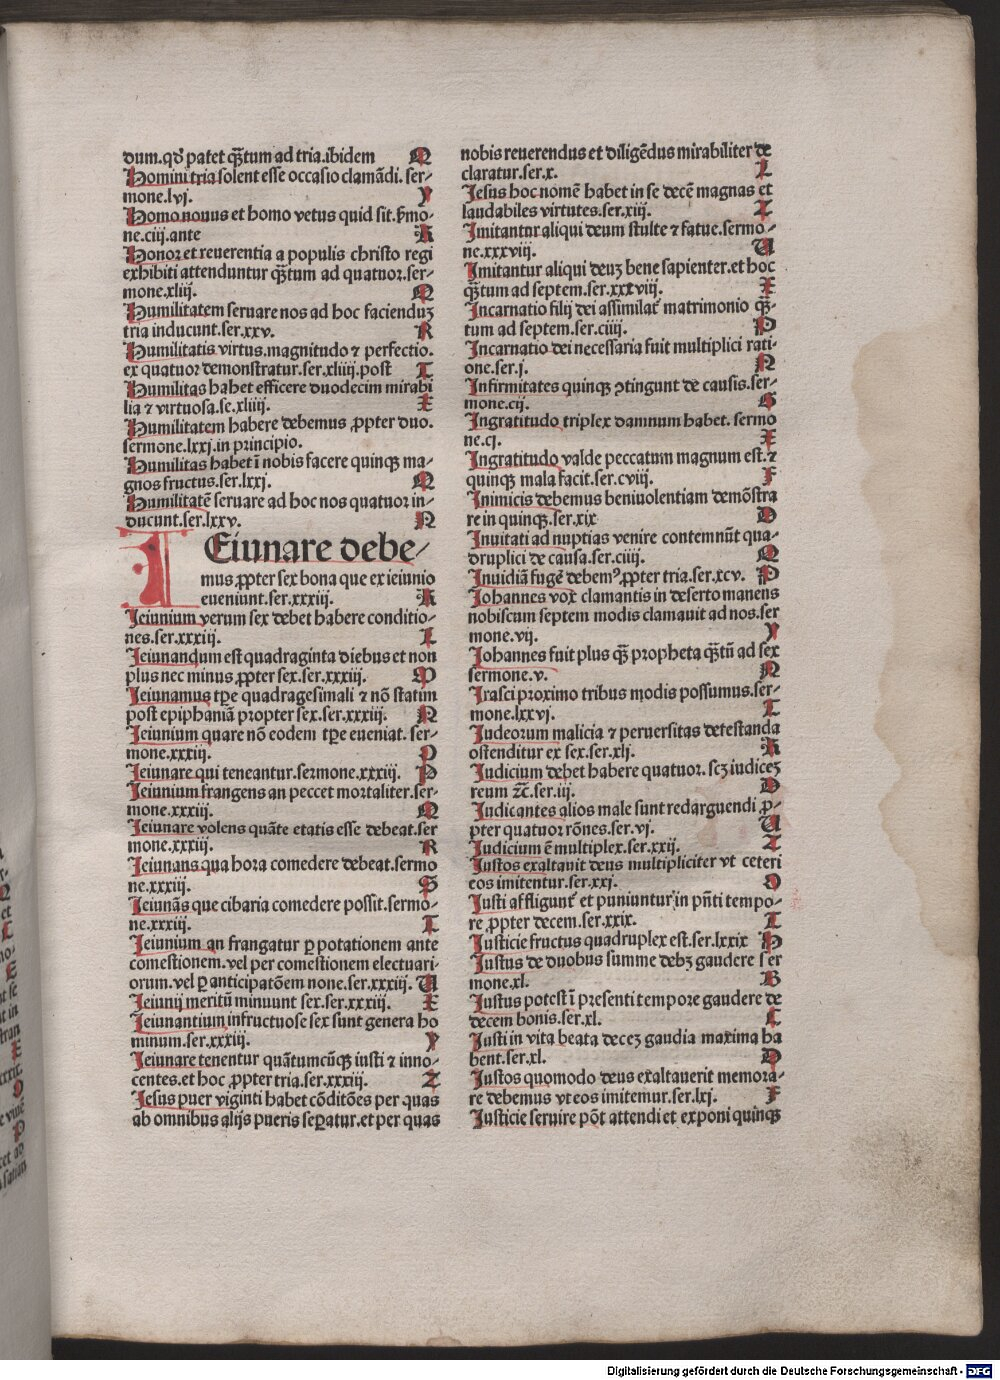 dum.qđ patet q̄tum ad tria.ibidem Q
Homini tria solent esse occasio clamādi.ser-
mone.lvj. Y
Homo nouus et homo vetus quid sit.smo-
ne.ciij.ante A
Honor et reuerentia a populis christo regi
exhibiti attenduntur q̄tum ad quatuor.ser-
mone.xliij. Q
Humilitatem seruare nos ad hoc facienduȝ
tria inducunt.ser.xxv. R
Humilitatis virtus.magnitudo ⁊ perfectio.
ex quatuor demonstratur.ser.xliiij.post T
Humilitas habet efficere duodecim mirabi
lia ⁊ virtuosa.se.xliiij. X
Humilitatem habere debemus ꝓpter duo.
sermone.lxxj.in principio.
Humilitas habet ī nobis facere quinqȝ ma-
gnos fructus.ser.lxxj. Q
Humilitatē seruare ad hoc nos quatuor in-
ducunt.ser.lxxv. N
IEiunare debe-
mus ꝓpter sex bona que ex ieiunio
eueniunt.ser.xxxiij. A
Ieiunium verum sex debet habere conditio-
nes.ser.xxxiij. L
Ieiunandum est quadraginta diebus et non
plus nec minus ꝓpter sex.ser.xxxiij. M
Ieiunamus tꝑe quadragesimali ⁊ nō statim
post epiphaniā propter sex.ser.xxxiij. N
Ieiunium quare nō eodem tꝑe eueniat. ser-
mone.xxxiij. O
Ieiunare qui teneantur.sermone.xxxiij. P
Ieiunium frangens an peccet mortaliter.ser-
mone.xxxiij. Q
Ieiunare volens quāte etatis esse debeat.ser
mone.xxxiij. R
Ieiunans qua hora comedere debeat.sermo
ne.xxxiij. S
Ieiunās que cibaria comedere possit.sermo-
ne.xxxiij. T
Ieiunium an frangatur ꝑ potationem ante
comestionem.vel per comestionem electuari-
orum.vel ꝑ anticipatōem none.ser.xxxiij. U
Ieiunij meritū minuunt sex.ser.xxxiij. X
Ieiunantium infructuose sex sunt genera ho
minum.ser.xxxiij. Y
Ieiunare tenentur quātumcūqȝ iusti ⁊ inno-
centes.et hoc ꝓpter tria.ser.xxxiij. Z
Iesus puer viginti habet cōditōes per quas
ab omnibus alijs pueris seꝑatur.et per quas
nobis reuerendus et diligēdus mirabiliter de
claratur.ser.x. L
Iesus hoc nomē habet in se decē magnas et
laudabiles virtutes.ser.xiij. X
Imitantur aliqui deum stulte ⁊ fatue.sermo-
ne.xxxviij. U
Imitantur aliqui deuȝ bene sapienter.et hoc
q̄tum ad septem.ser.xxxviij. X
Incarnatio filij dei assimilat̄ matrimonio q̄-
tum ad septem.ser.ciiij. P
Incarnatio dei necessaria fuit multiplici rati-
one.ser.j. N
Infirmitates quinqȝ ↄtingunt de causis.ser-
mone.cij. G
Ingratitudo triplex damnum habet. sermo
ne.cj. X
Ingratitudo valde peccatum magnum est.⁊
quinqȝ mala facit.ser.cviij. F
Inimicis debemus beniuolentiam demōstra
re in quinqȝ.ser.xix D
Inuitati ad nuptias venire contemnūt qua-
druplici de causa.ser.ciiij. Q
Inuidiā fugē debemꝰ ꝓpter tria.ser.xcv. P
Iohannes vox clamantis in deserto manens
nobiscum septem modis clamauit ad nos.ser
mone.vij. Y
Iohannes fuit plus q̄ propheta q̄tū ad sex
sermone.v. N
Irasci proximo tribus modis possumus.ser-
mone.lxxvj. T
Iudeorum malicia ⁊ peruersitas detestanda
ostenditur ex sex.ser.xlj. A
Iudicium debet habere quatuor. scȝ iudiceȝ
reum ⁊c̄.ser.iij. D
Iudicantes alios male sunt redarguendi ꝓ-
pter quatuor rōnes.ser.vj. U
Iudicium ē multiplex.ser.xxij. Z
Iustos exaltauit deus multipliciter vt ceteri
eos imitentur.ser.xxj. O
Iusti affligunt̄ et puniuntur in pn̄ti tempo-
re ꝓpter decem.ser.xxix. T
Iusticie fructus quadruplex est.ser.lxxix H
Iustus de duobus summe debȝ gaudere ser
mone.xl. B
Iustus potest ī presenti tempore gaudere de
decem bonis.ser.xl. C
Iusti in vita beata deceȝ gaudia maxima ha
bent.ser.xl. D
Iustos quomodo deus exaltauerit memora-
re debemus vt eos imitemur.ser.lxj. F
Iusticie seruire pōt attendi et exponi quinqȝ
Digitalisierung gefördert durch die Deutsche Forschungsgemeinschaft - DFG